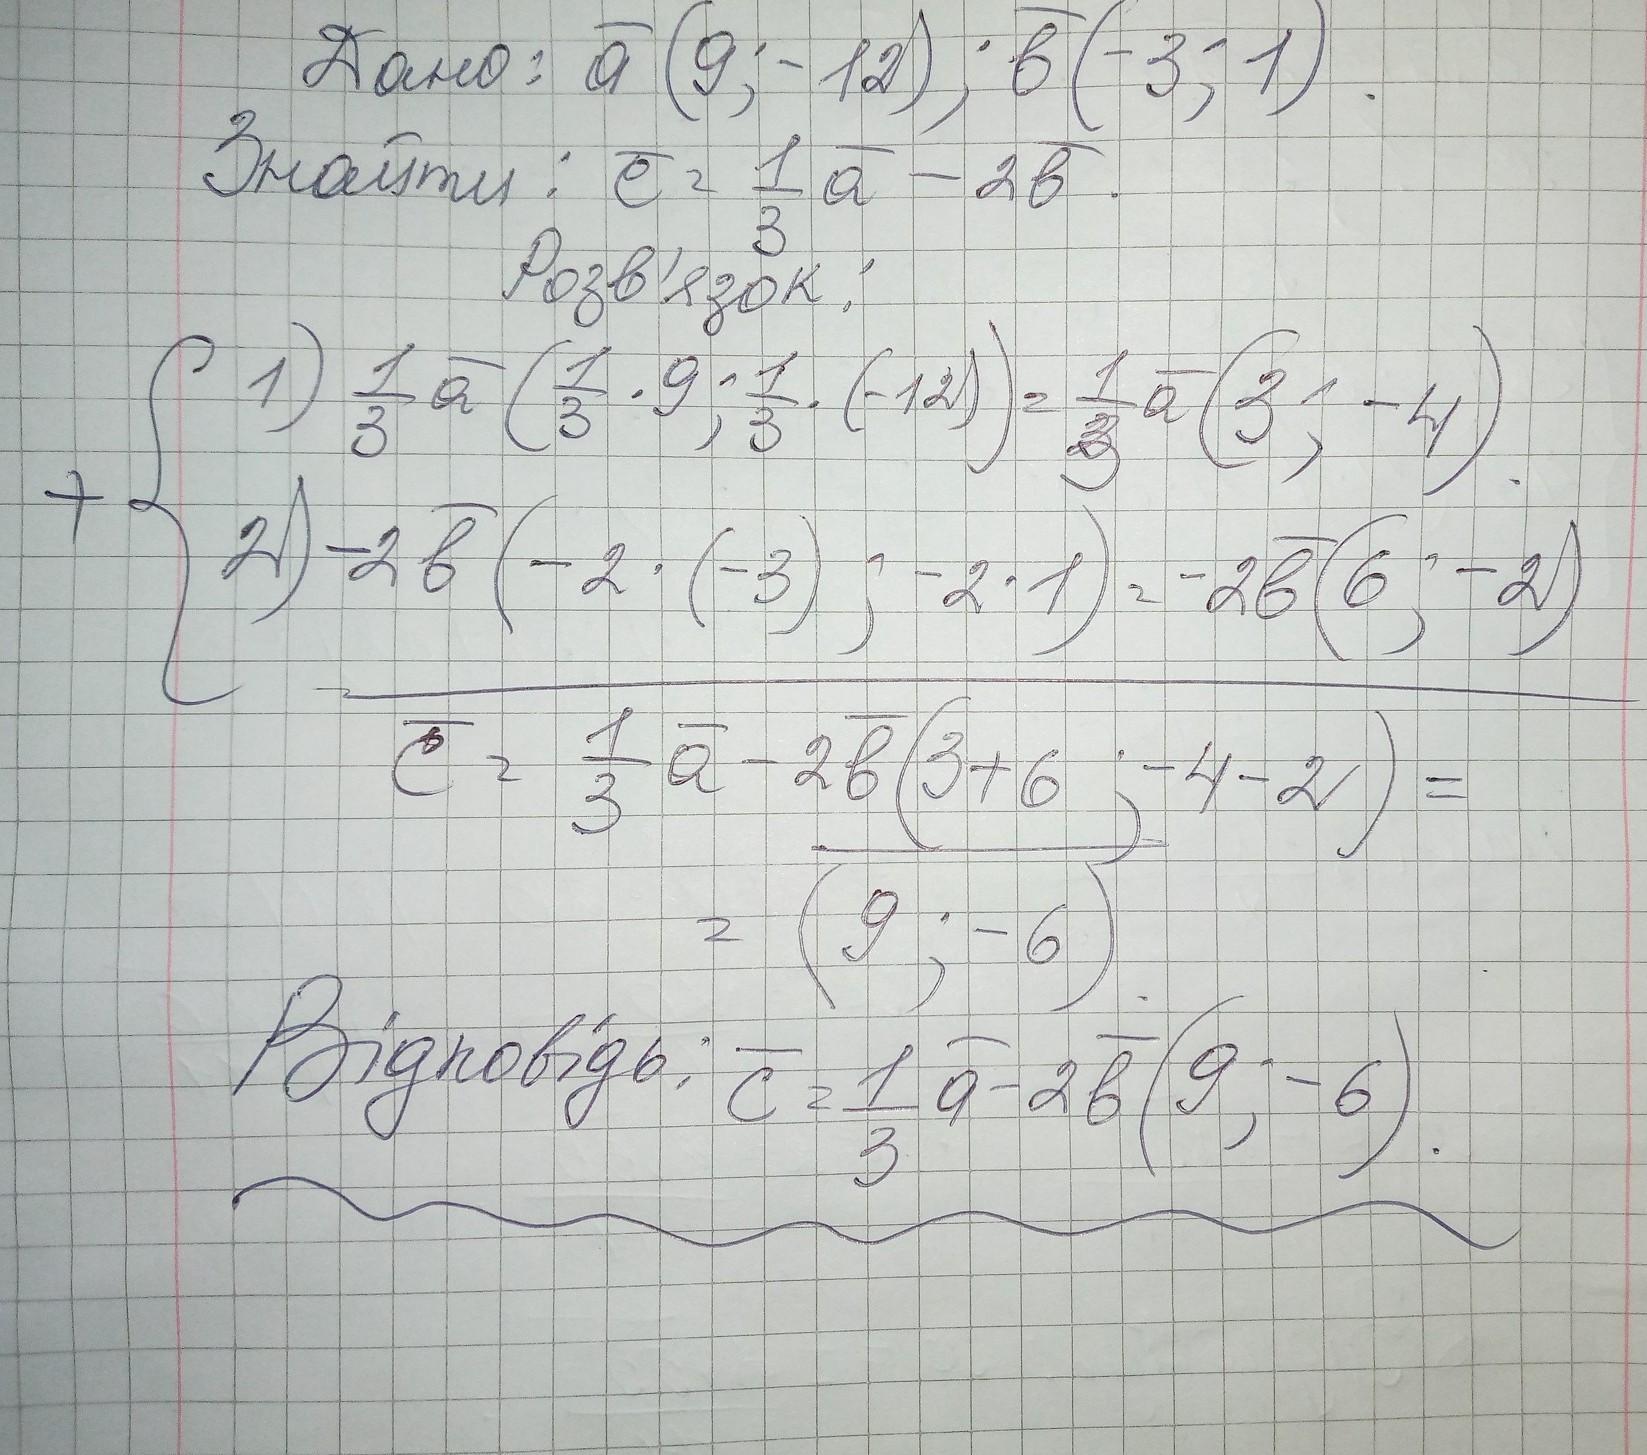 Дано: a̅ (9; -12); b̅ (-3; 1).
Знайти: c̅ = 1/3 a̅ - 2b̅.
Розв'язок:
1) 1/3 a̅ (1/3 · 9; 1/3 · (-12)) = 1/3 a̅ (3; -4).
+
2) -2b̅ (-2 · (-3); -2 · 1) = -2b̅ (6; -2)
c̅ = 1/3 a̅ - 2b̅ (3+6; -4-2) =
= (9; -6).
Відповідь: c̅ = 1/3 a̅ - 2b̅ (9; -6).